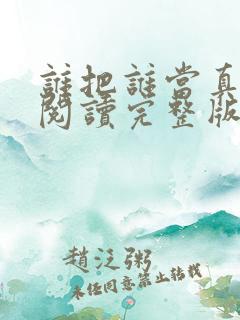 誰把誰當真
閱讀完整版
趙泛粥
未任同意禁止轉載